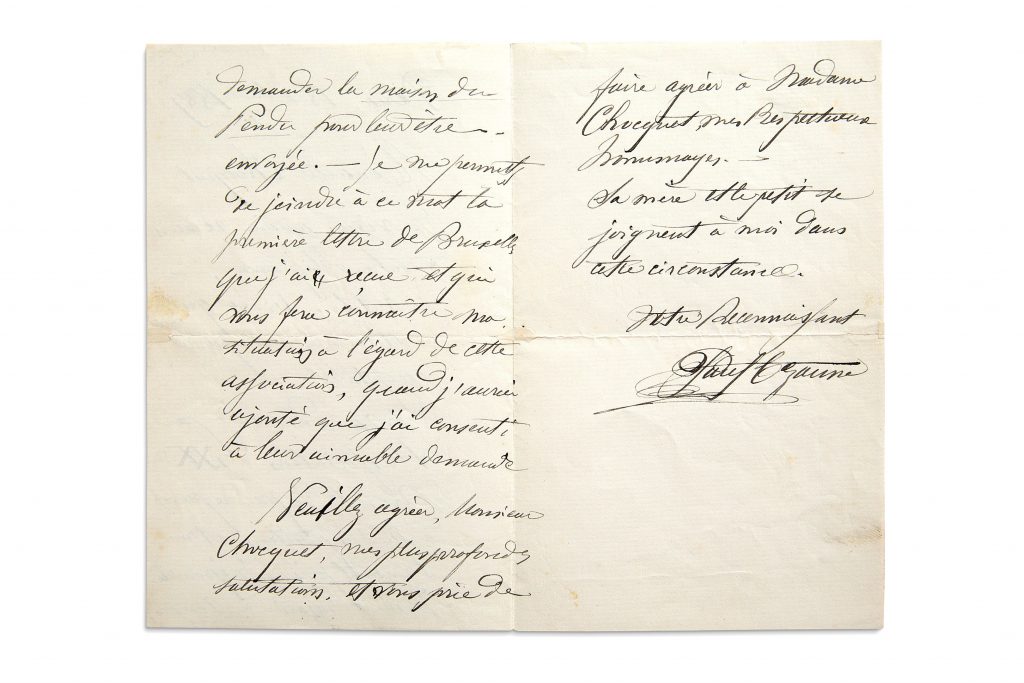 demander la maison du
Pendu pour leur être
envoyée. — Je me permets
de joindre à ce mot la
première lettre de Bruxelles
que j'ai reçue et qui
vous fera connaître ma
situation à l'égard de cette
association, quand j'aurai
ajouté que j'ai consenti
à leur aimable demande
Veuillez agréer, Monsieur
Chocquet, mes plus profondes
salutations, et vous prie de
faire agréer à Madame
Chocquet, mes Respectueux
hommages. —
Sa mère et le petit se
joignent à moi dans
cette circonstance.
Votre Reconnaissant
Paul Cezanne